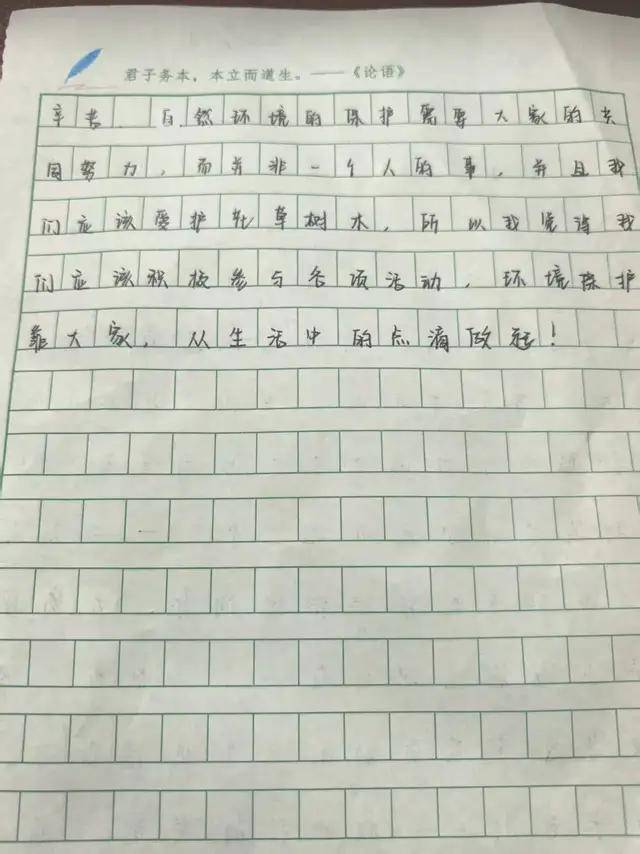 君子务本，本立而道生。——《论语》
辛苦 自然环境的保护需要大家的共
同努力，而并非一个人的事，并且我
们应该爱护花草树木，所以我觉得我
们应该积极参与各项活动，环境保护
靠大家，从生活中的点滴做起！